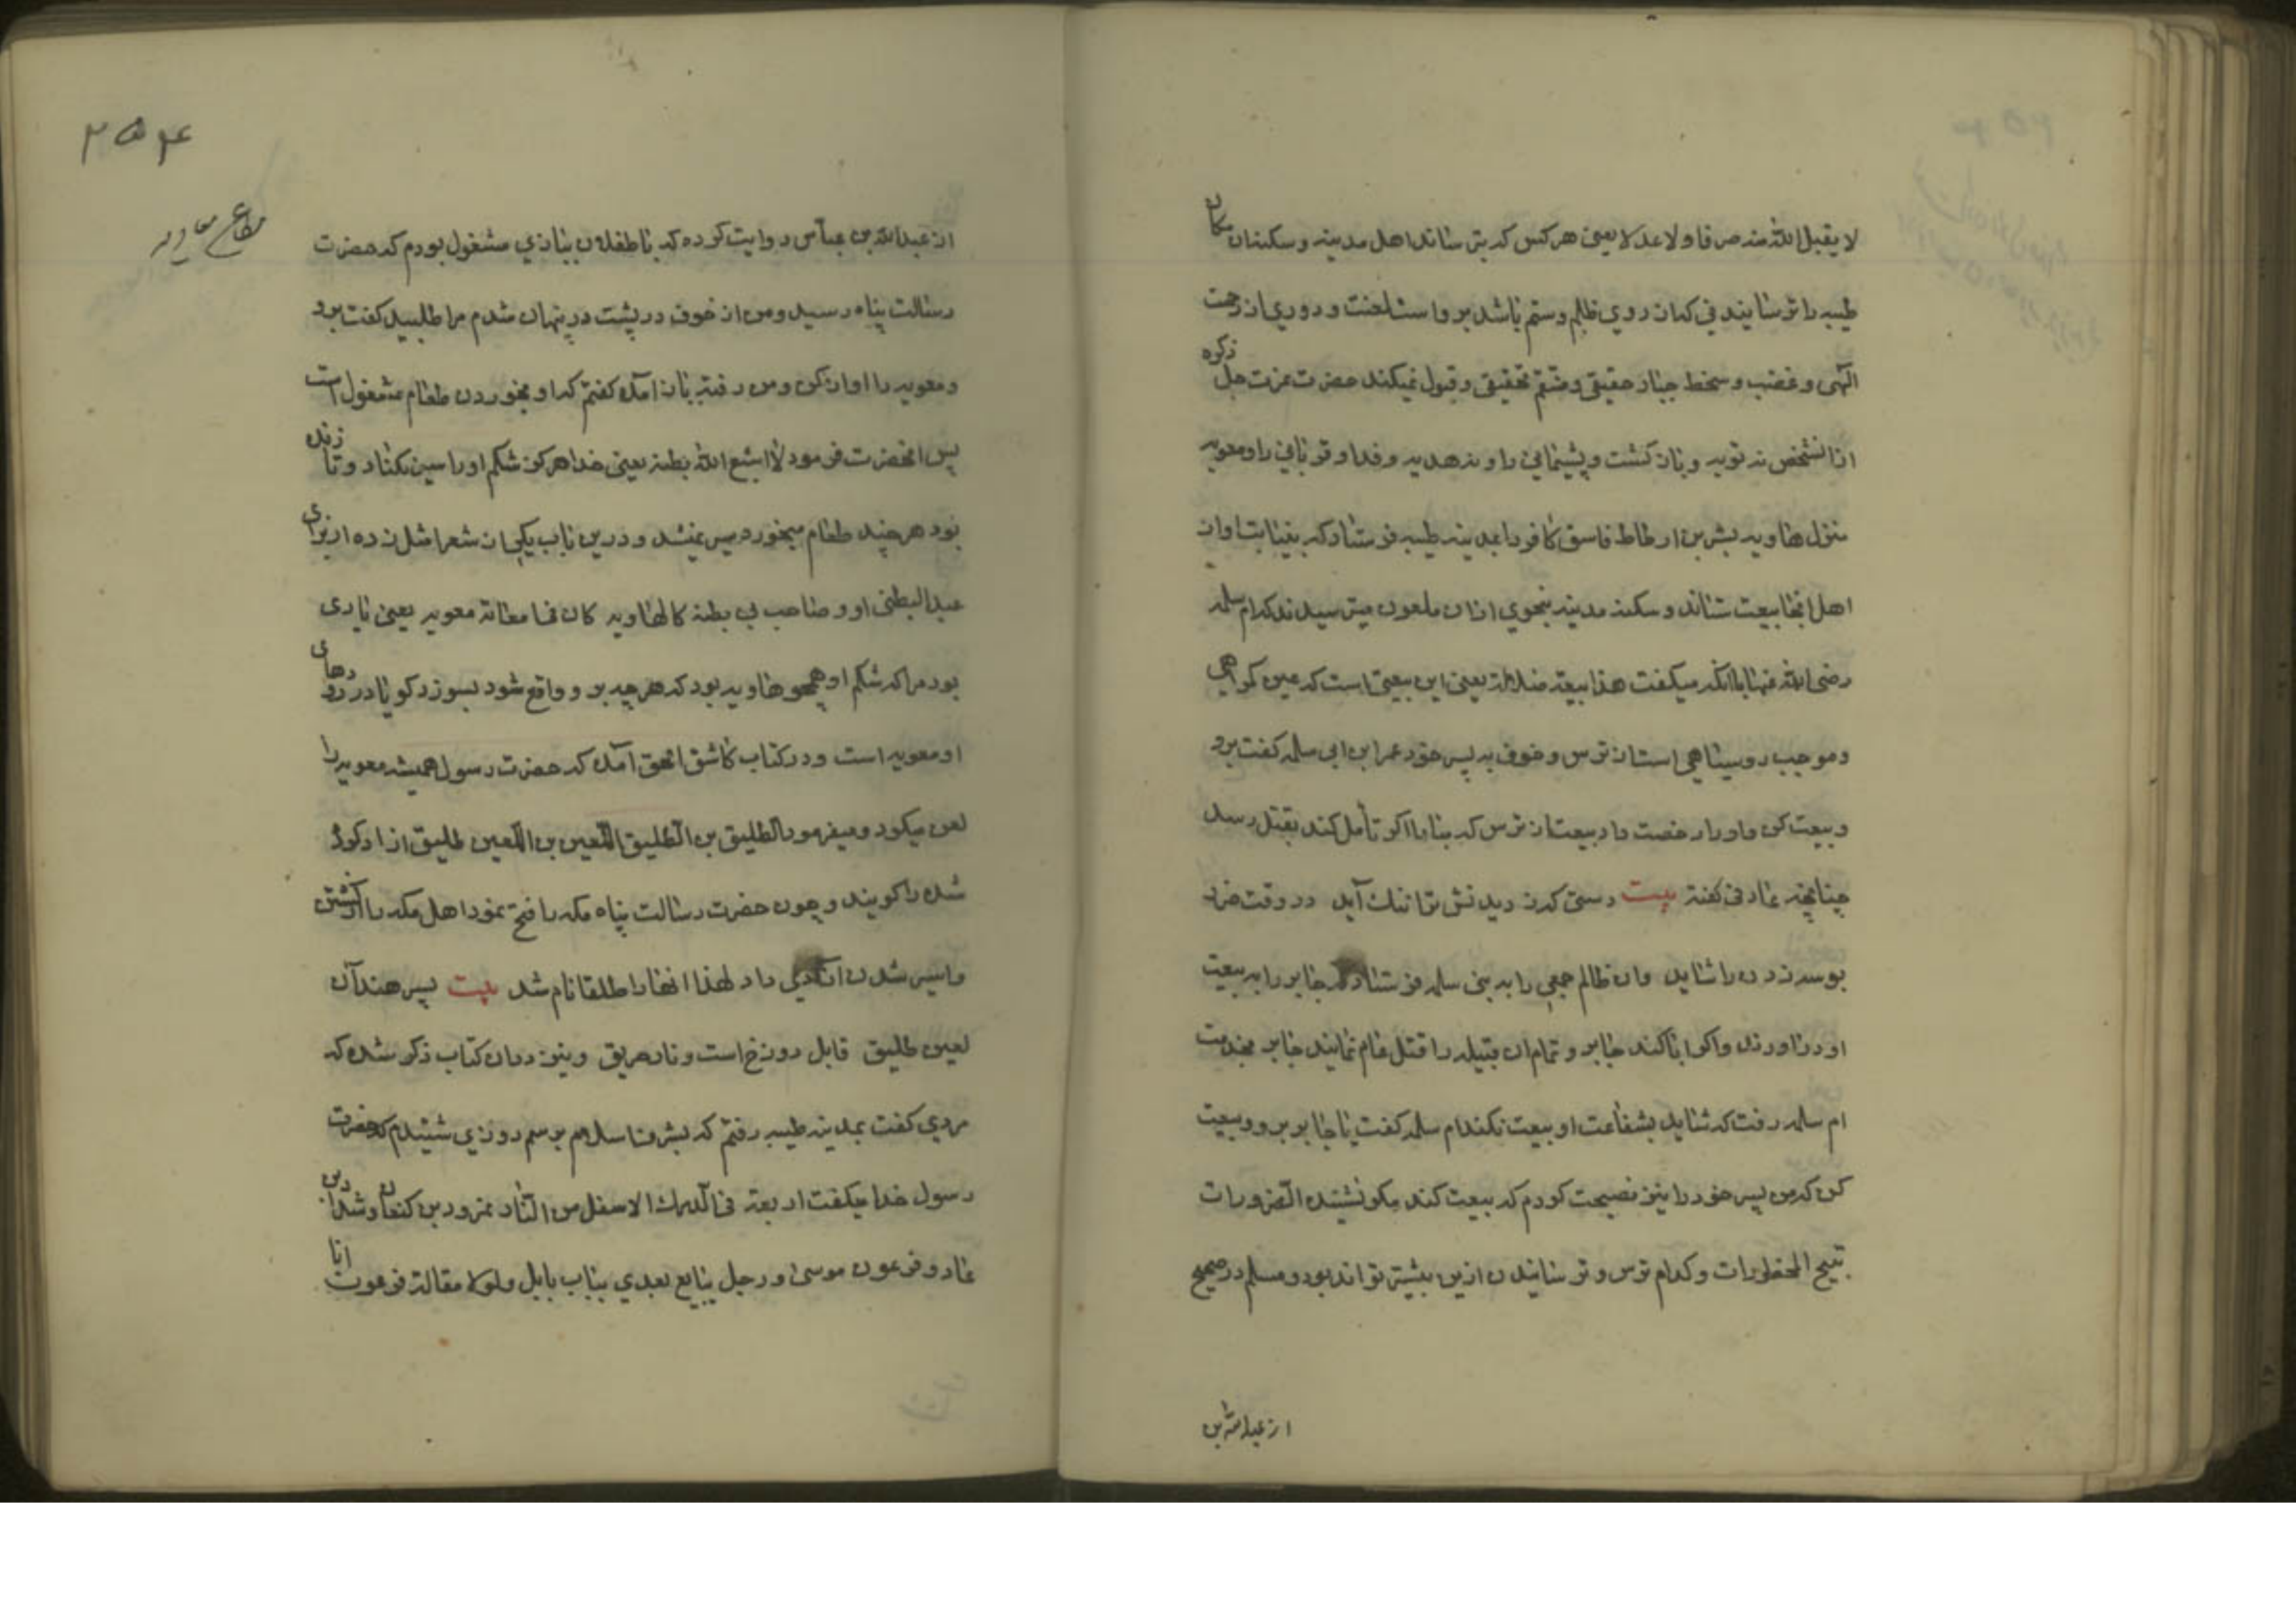 لا یقبل الله منه صرفا ولا عدلا یعنی هر کس که بترساند اهل مدینه و سکنهٔ ان مکان
طیبه را ترسانیدنی که از روی ظلم و ستم باشد بر واست لعنت و دوری از رحمت
الهی و غضب و سخط جبار حقیقی و منتقم تحقیقی و قبول نمیکند حضرت عزت جل ذکره
از انشخص نه توبه و بازکشت و پشیمانی را و نه هدیه و فدا و قربانی را و معویه
منزل هاویه بشر بن ارطاط فاسق کافر را بمدینه طیبه فرستاد که به نیابت او از
اهل انجا بیعت ستاند و سکنه مدینه بنحوی از ان ملعون میترسیدند که ام سلمه
رضی الله عنها با انکه میکفت هذا بیعة ضلالة یعنی این بیعتی است که عین کمراهی
و موجب روسیاهی است از ترس و خوف به پسر خود عمر ابن ابی سلمه کفت برو
و بیعت کن و او را رخصت داد بیعت از ترس که مبادا اکر تأمل کند بقتل رسد
چنانچه عمادی کفته بیت دستی که زدیدنش ترا ننک آید در وقت ضرر
بوسه زدن را شاید و ان ظالم جمعی را به بنی سلمه فرستاد که جابر را به بیعت
او در اورند و اکر ابا کند جابر و تمام ان قبیله را قتل عام نمایند جابر بخدمت
ام سلمه رفت که شاید بشفاعت او بیعت نکند ام سلمه کفت یا جابر برو و بیعت
کن که من پسر خود را نیز نصیحت کردم که بیعت کند مکر نشنیده الضرورات
تبیح المحظورات و کدام ترس و ترسانیدن ازین بیشتر تواند بود و مسلم در صحیح
از عبدالله بن
۲۵۴
از عبدالله بن عباس روایت کرده که با طفلان ببازی مشغول بودم که حضرت
رسالت پناه رسید و من از خوف در پشت در پنهان شدم مرا طلبید کفت برو
و معویه را اواز کن و من رفته باز امده کفتم که او بخوردن طعام مشغول است
پس انحضرت فرمود لا اشبع الله بطنه یعنی خدا هرکز شکم او را سیر نکناد و تا زنده
بود هرچند طعام میخورد سیر نمیشد و درین باب یکی از شعرا مثل زده از برای
عبد البطنی او و صاحب لی بطنه کالهاویه کان فی امعائه معویه یعنی یاری
بود مرا که شکم او همچو هاویه بود که هر چه برو واقع شود بسوزد کویا در رودهای
او معویه است و در کتاب کاشف الحق آمده که حضرت رسول همیشه معویه را
لعن میکرد و میفرمود الطلیق بن الطلیق اللعین بن اللعین طلیق ازاد کرده
شده را کویند و چون حضرت رسالت پناه مکه را فتح نمود اهل مکه را از کشتن
و اسیر شدن ازادی داد لهذا انها را طلقا نام شد بیت پسر هند آن
لعین طلیق قابل دوزخ است و نار حریق و نیز در ان کتاب ذکر شده که
مردی کفت بمدینه طیبه رفتم که بشرف اسلام برسم روزی شنیدم که حضرت
رسول خدا میکفت اربعة فی الدرك الاسفل من النار نمرود بن کنعان و شداد بن
عاد و فرعون موسی و رجل یبایع بعدی بباب بابل و لولا مقالة فرعون انا